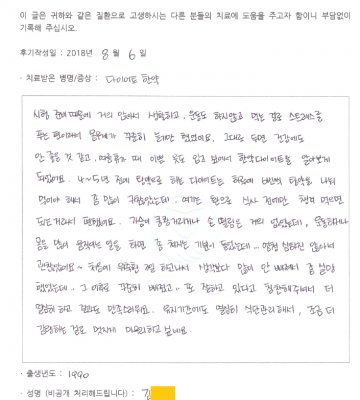 이 글은 귀하와 같은 질환으로 고생하시는 다른 분들의 치료에 도움을 주고자 함이니 부담없이
기록해 주십시오.
후기작성일 : 2018년 8월 6일
· 치료받은 병명/증상 : 다이어트 한약
시험 준비 때문에 거의 앉아서 생활하고, 운동도 하지않고 먹는 걸로 스트레스를
푸는 편이라서 몸무게가 꾸준히 늘기만 했었어요. 그대로 두면 건강에도
안 좋을 것 같고, 여름휴가 때 이쁜 옷도 입고 싶어서 한약다이어트를 알아보게
되었어요. 4~5년 전에 탕약으로 하는 다이어트는 하루에 번씩 탕약을 나눠
먹어야 해서 좀 많이 귀찮았는데. 여기는 환으로 식사 전에만 챙겨 먹으면
되는거라서 편했어요. 가슴이 두근거리거나 손 떨림은 거의 없었는데,
몸을 많이 움직이는 일을 하면 좀 쳐지는 기분이 들었는데... 엄청 심하진 않아서
괜찮았어요~ 처음에 일주일 정도 하고나서 생각보다 많이 안 빠져서 좀 실망
했었는데.. 그 이후로 꾸준히 빠졌고.. 또 잘하고 있다고 칭찬해주셔서 더
열심히 하고 결과도 만족스러워요. 유지기간에도 열심히 식단관리해서, 조금 더
감량하는 걸로 멋지게 마무리하고 싶네요.
· 출생년도 : 1990
· 성명 (비공개 처리해드립니다) : 김